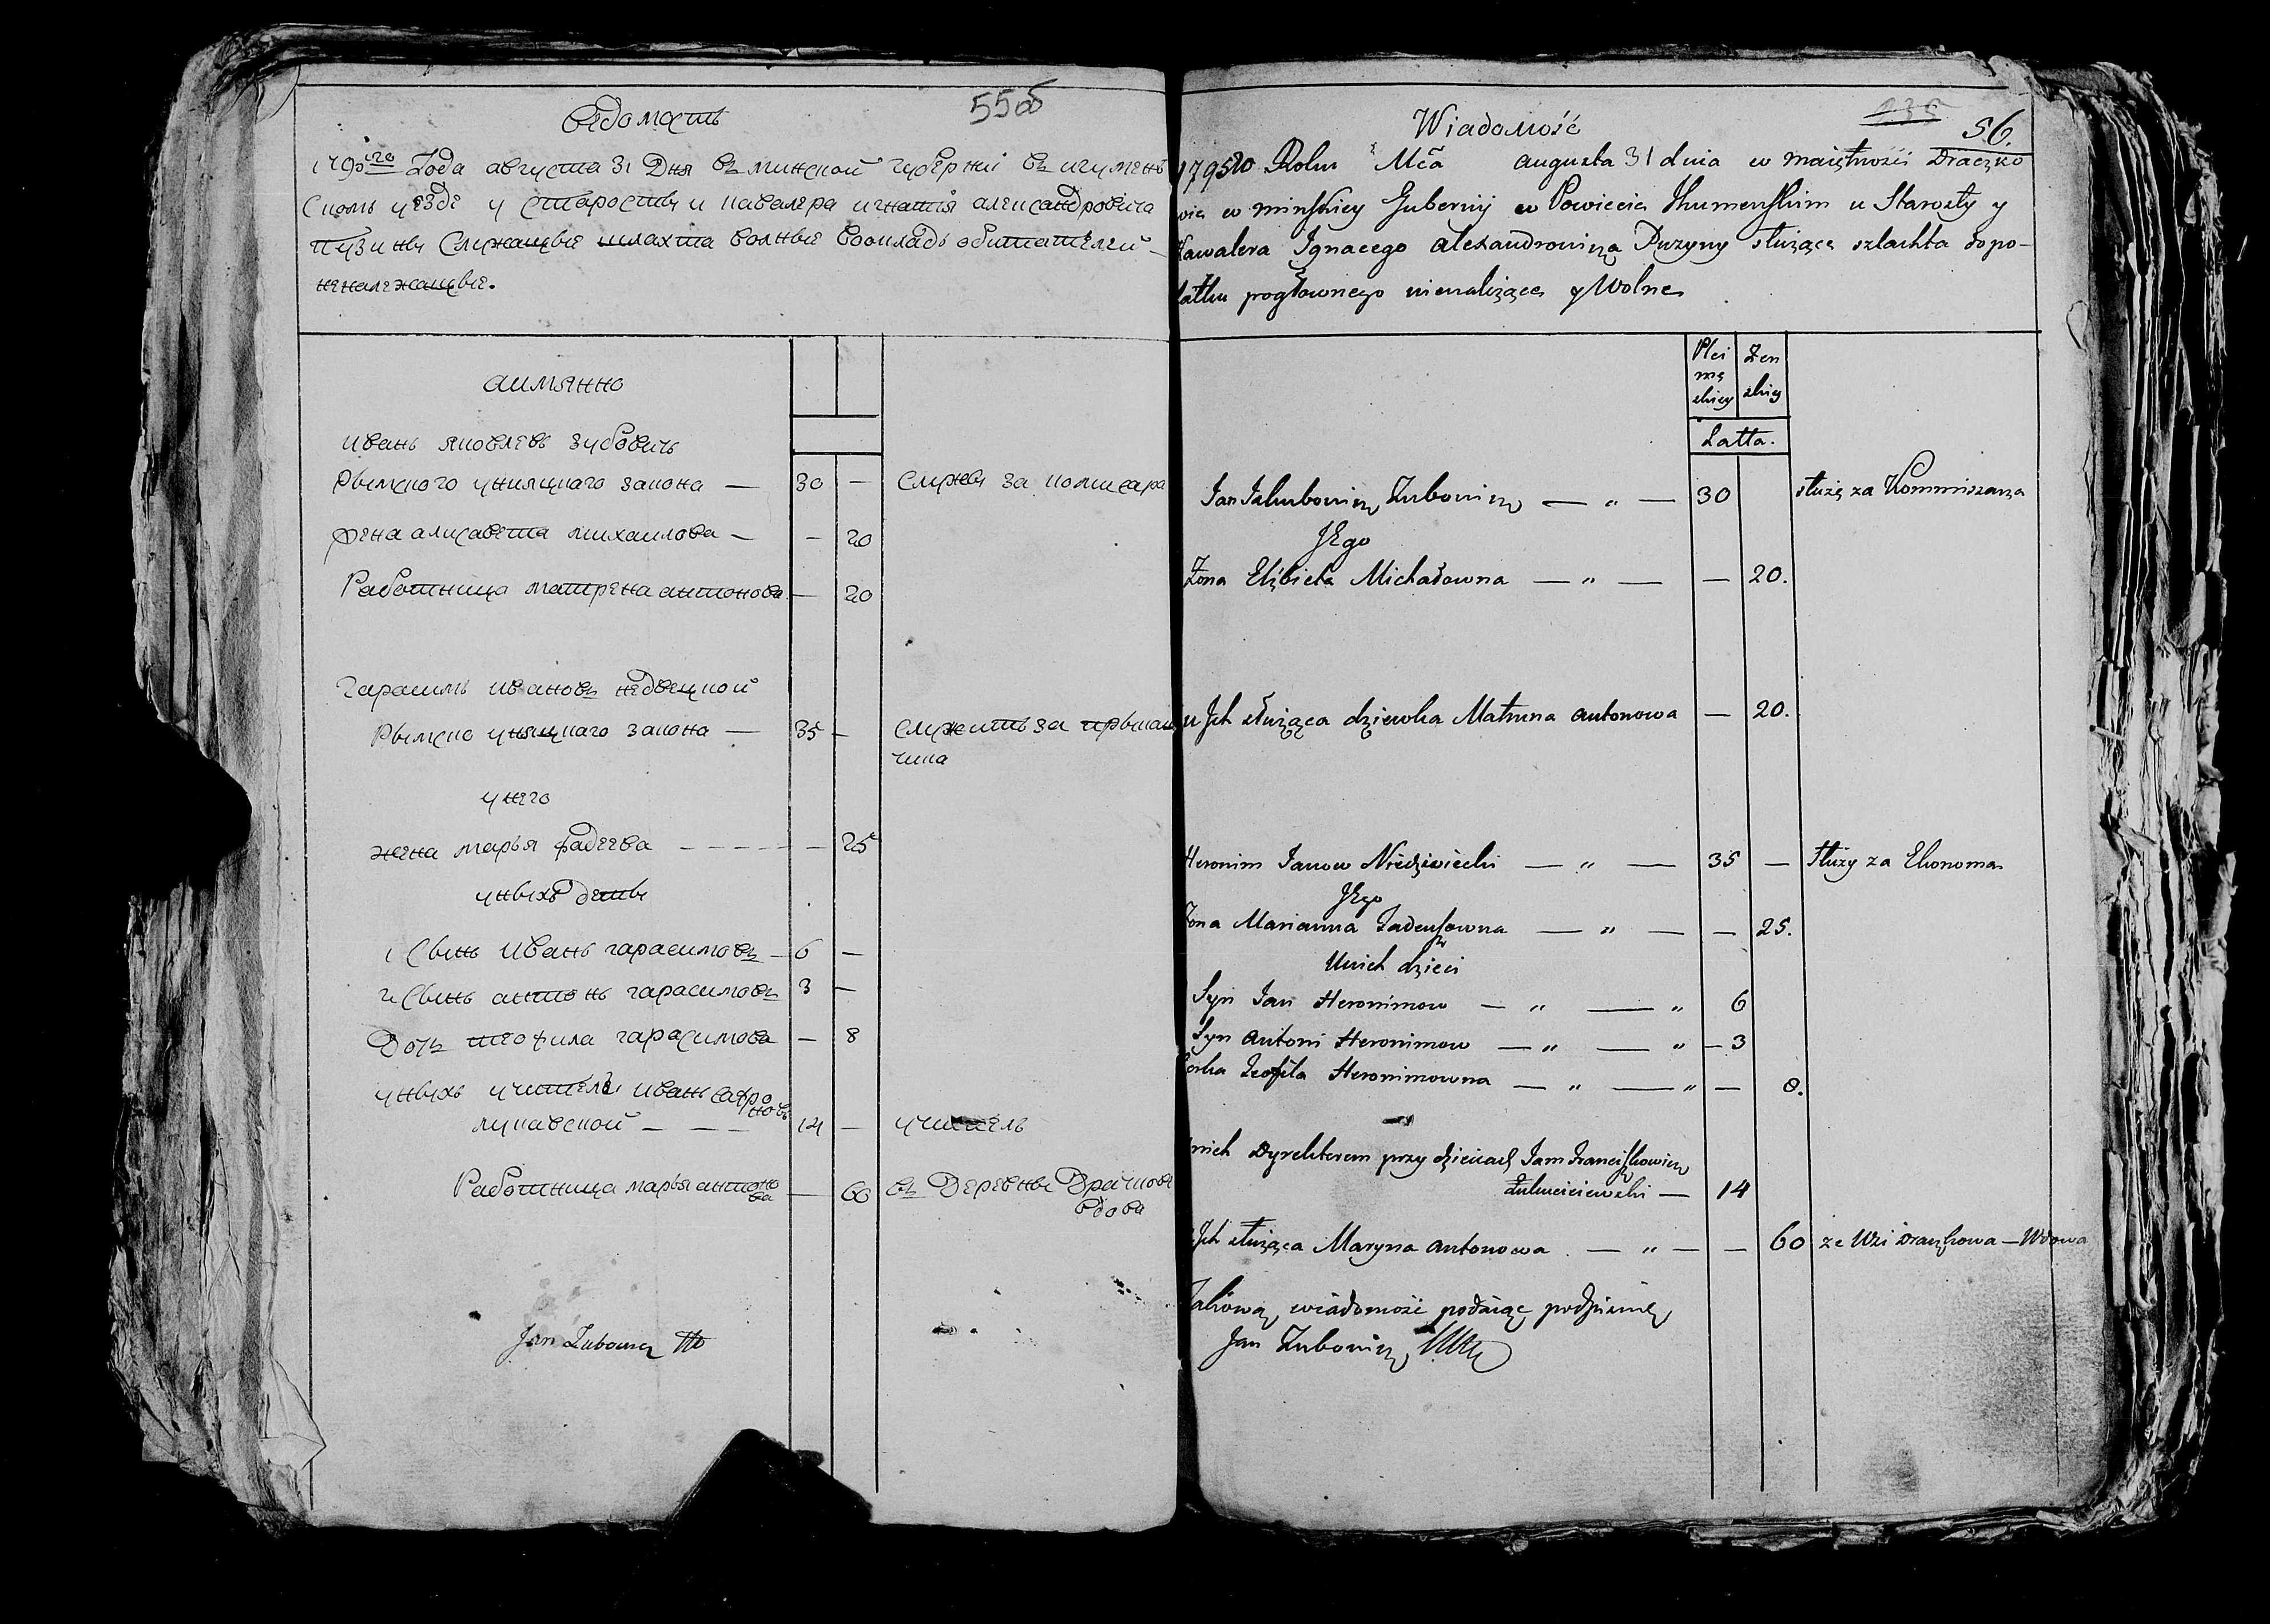 Ведомость
55об
1795го Года августа 31 Дня въ минской губернiи въ игумень
скомъ уезде у старосты и кавалера игнатiя александровича
пузины служащые шлахта волные вооклад обитателей
неналежащые.
аимянно
иванъ яковлевъ зубовичъ
рымского униацкаго закона — 30 — служы за комисара
жена алисавета михаилова — — 20
Работница матрена антонова — 20
гарасимъ ивановъ недвецкой
рымско унияцкаго закона — 35 — служитъ за прыкащ
чика
унего
жена марья фадеева — — — — — 25
уныхъ деты
1 сынъ иванъ гарасимовъ — 6 —
2 сынъ антонъ гарасимовъ 3 —
дочь теофила гарасимова — 8
уныхъ учитель иванъ
лукавской — — — 14 — учитель
Работница марья антоно
ва — 60 въ Деревны Драчкове
вдова
Jan Zubowicz
Wiadomość
135
56.
1795go Roku Mca augusta 31 dnia w maiętności Draczko
wie w minskiey Gubernij w Powiecie Ihumenskim u Starosty y
Kawalera Ignacego alexandrowicza Puzyny służące szlachta do po-
datku pogłownego nienaliżące y Wolne
Płci
mę
skiey
Zen
skiey
Latta.
Jan Jakubowicz Zubowicz — „ — 30 służę za Kommissarza
JEgo
Zona Elżbieta Michałowna — „ — — 20.
u Jch służąca dziewka Matruna antonowa — 20.
Heronim Janow Niedzwiecki — „ — 35 — Służy za Ekonoma
JEgo
Zona Marianna Tadeuszowna — „ — — 25.
Unich dzieci
Syn Jan Heronimow — „ — „ 6
Syn antoni Heronimow — „ — „ — 3
Corka Teofila Heronimowna — „ — „ — 8.
unich Dyrekterem przy dzieciach Jam Franciszkowicz
— 14
u Jch służąca Maryna antonowa — „ — — 60 ze Wsi Draczkowa — Wdowa
Takową wiadomość podaiąc podpisuię
Jan Zubowicz